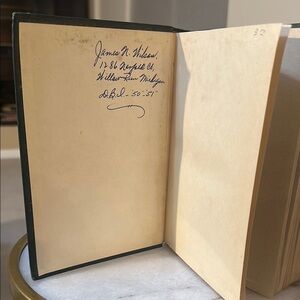 James N. Wilson.
1286 Ct.
Willow Run Michigan
D.B.I. - 50 - 51
32